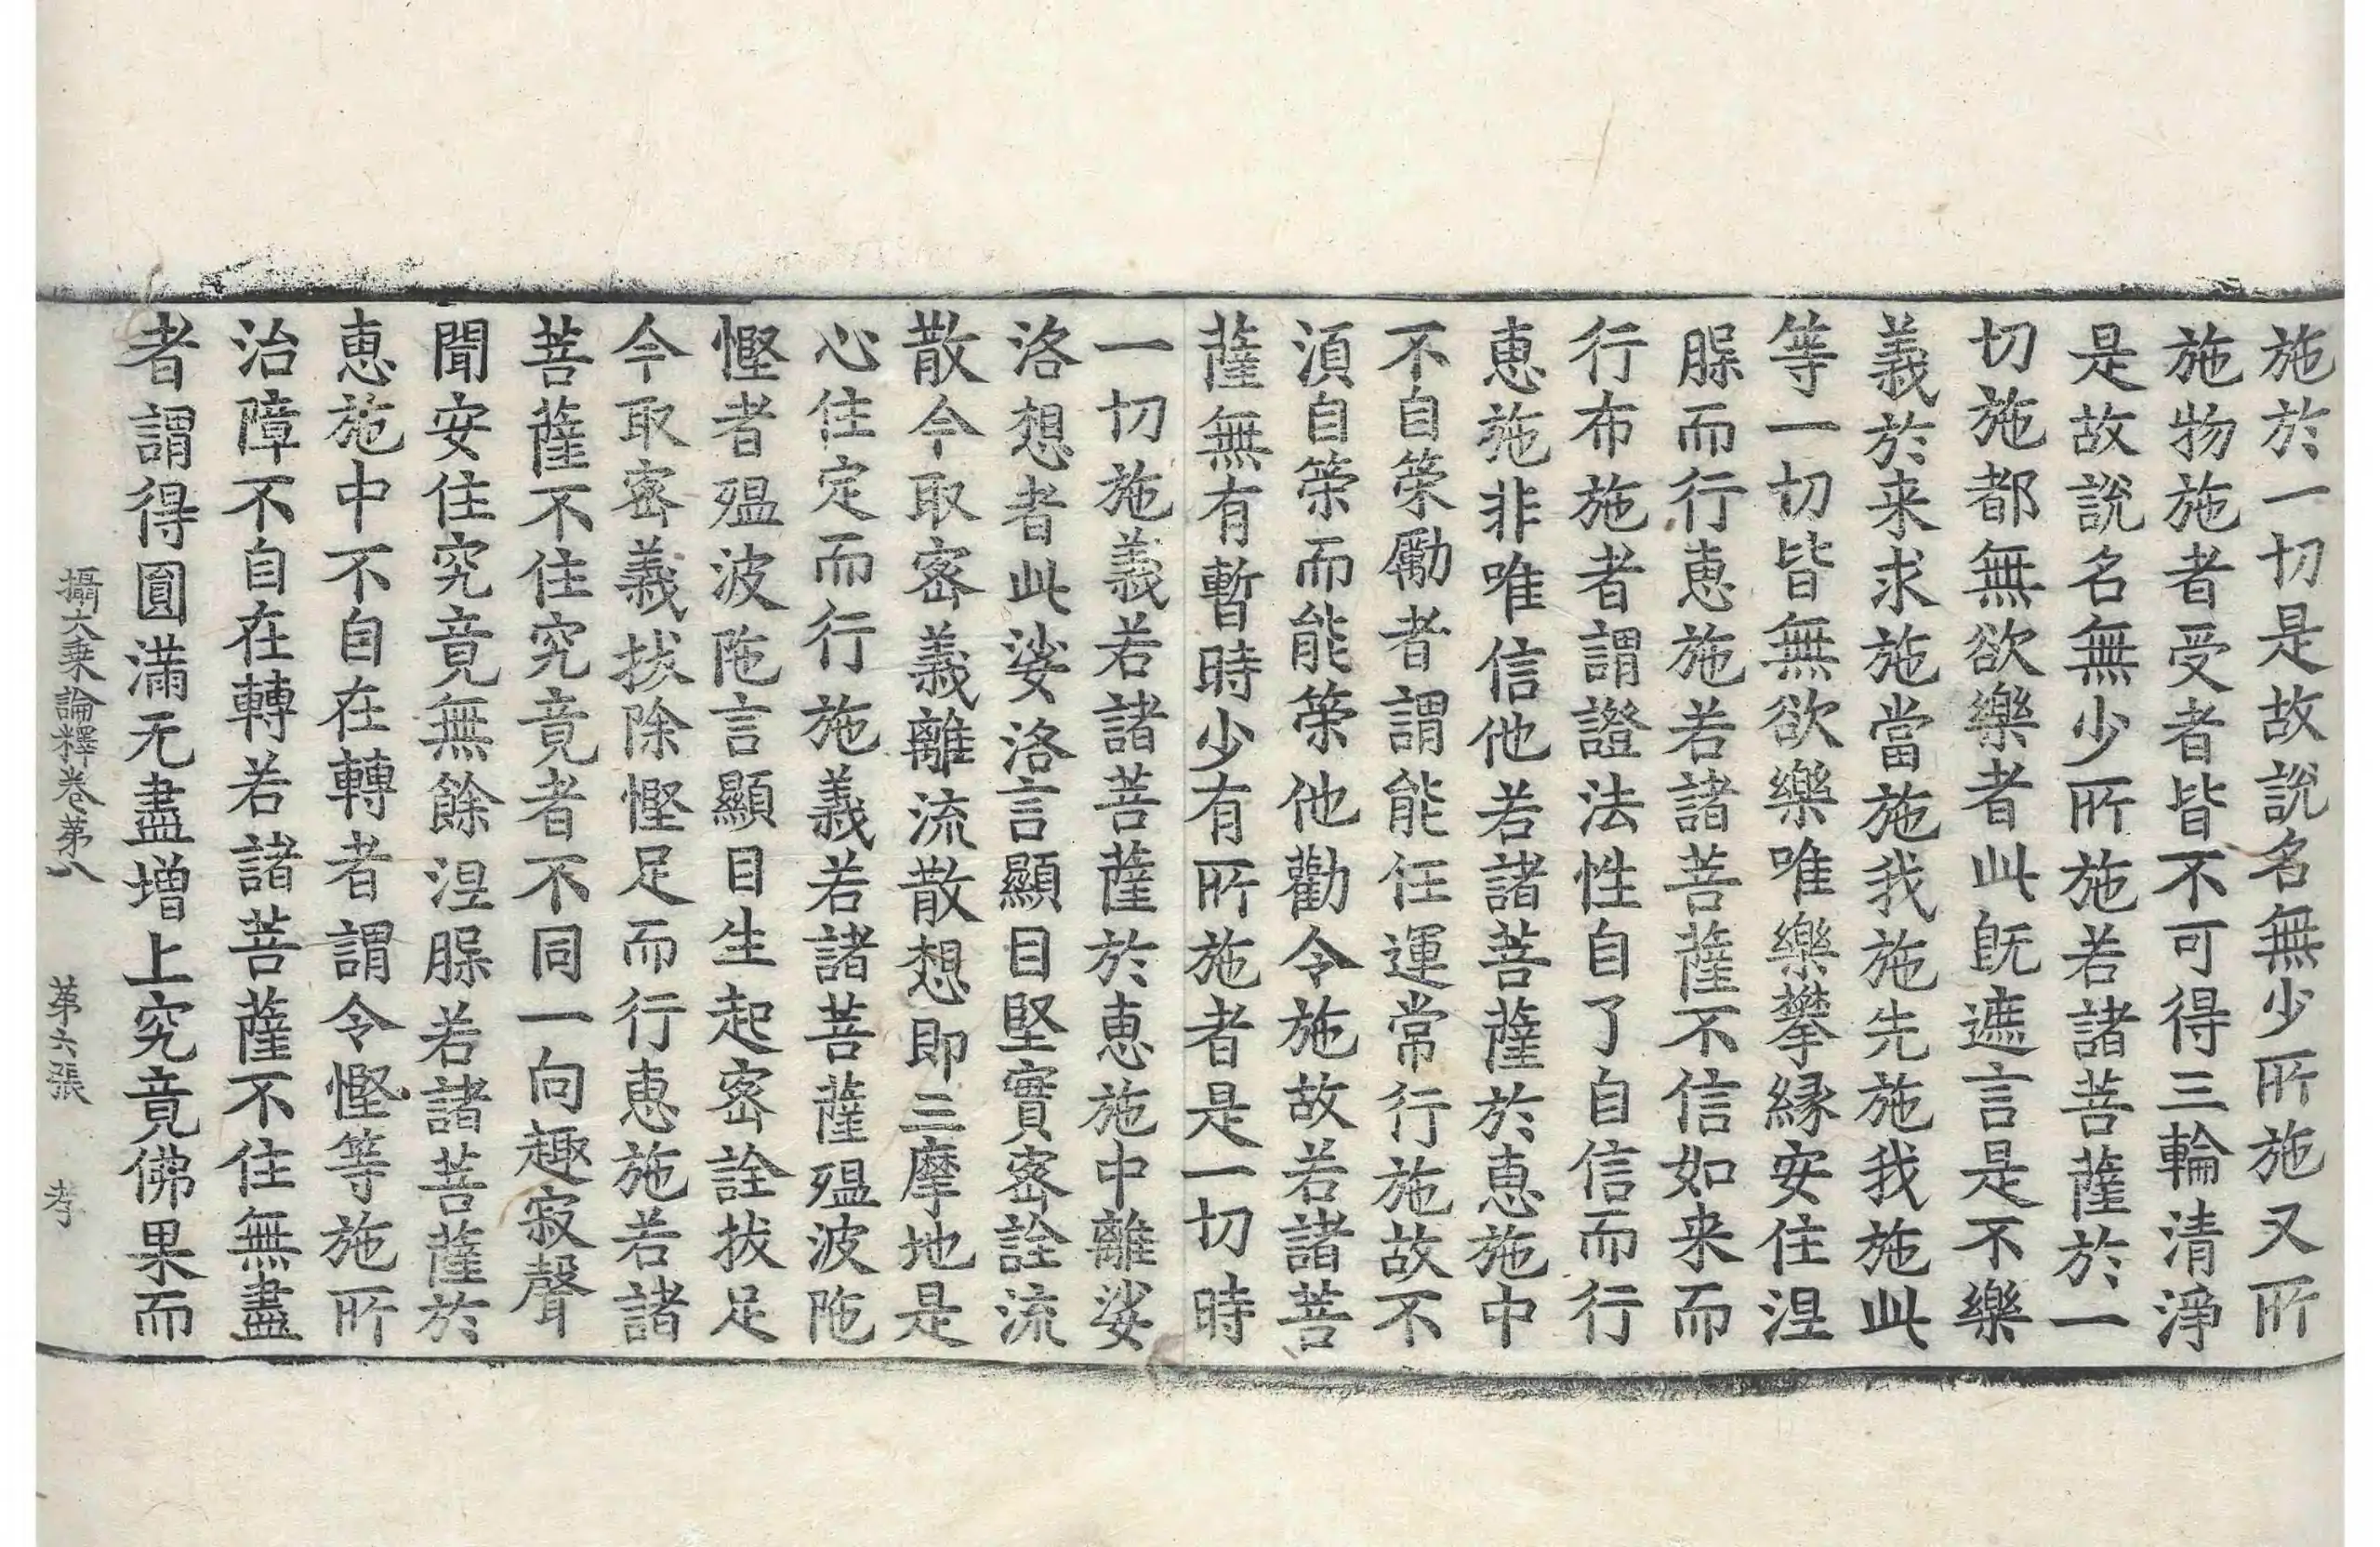 施於一切是故說名無少所施又所
施物施者受者皆不可得三輪清淨
是故說名無少所施若諸菩薩於一
切施都無欲樂者此旣遮言是不樂
義於来求施當施我施先施我施此
等一切皆無欲樂唯樂攀緣安住涅
槃而行惠施若諸菩薩不信如来而
行布施者謂證法性自了自信而行
惠施非唯信他若諸菩薩於惠施中
不自策勵者謂能任運常行施故不
湏自策而能策他勸令施故若諸菩
薩無有暫時少有所施者是一切時
一切施義若諸菩薩於惠施中離娑
洛想者此娑洛言顯目堅實密詮流
散今取密義離流散想即三摩地是
心住定而行施義若諸菩薩殟波陁
慳者殟波陁言顯目生起密詮拔足
今取密義拔除慳足而行惠施若諸
菩薩不住究竟者不同一向趣寂聲
聞安住究竟無餘涅槃若諸菩薩於
惠施中不自在轉者謂令慳等施所
治障不自在轉若諸菩薩不住無盡
者謂得圓滿无盡增上究竟佛果而
攝大乗論釋卷苐八 苐六張 孝